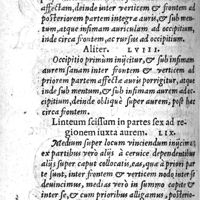 affectam, deinde inter verticem & frontem ad
posteriorem partem integræ auris, & sub men
tum, atque infimam auriculam ad occipitium,
inde circa frontem, ac rursus ad occipitium.
Aliter. LVIII.
Occipitio primùm inijcitur, & sub infimam
aurem sanam inter frontem & verticem à
posteriore parte affectæ auris porrigitur, atque
inde sub mentum, & sub infimam aurem ad oc-
cipitium, deinde obliquè super aurem, post hæc
circa frontem.
Linteum scissum in partes sex ad re
gionem iuxta aurem. LIX.
Medium super locum vinciendum inijcimus,
ex partibus verò alijs à cervice dependentibus
alijs super caput collocatis, eas, quæ à priori par
te sunt, inter frontem & verticem nodo inter se
devincimus, medias verò sub mento copite &
inter se, & cum prioribus alligamus, posterio-